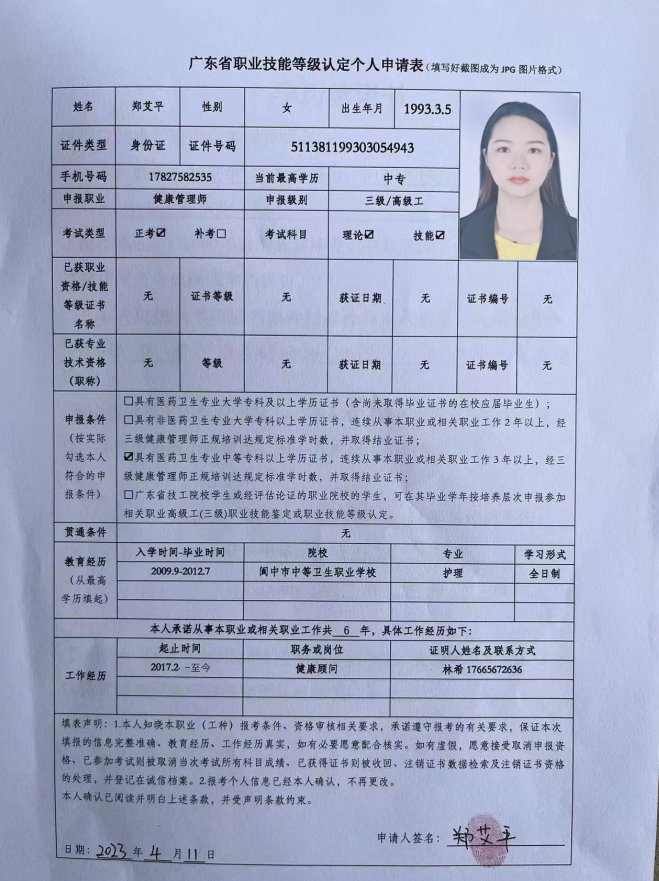 广东省职业技能等级认定个人申请表(填写好截图成为 JPG 图片格式)
姓名 郑艾平 性别 女 出生年月 1993.3.5
证件类型 身份证 证件号码 511381199303054943
手机号码 17827582535 当前最高学历 中专
申报职业 健康管理师 申报级别 三级/高级工
考试类型 正考☑ 补考☐ 考试科目 理论☑ 技能☑
已获职业
资格/技能
等级证书
名称
无 证书等级 无 获证日期 无 证书编号 无
已获专业
技术资格
(职称)
无 等级 无 获证日期 无 证书编号 无
申报条件
(按实际
勾选本人
符合的申
报条件)
☐具有医药卫生专业大学专科及以上学历证书(含尚未取得毕业证书的在校应届毕业生);
☐具有非医药卫生专业大学专科以上学历证书,连续从事本职业或相关职业工作2年以上,经
三级健康管理师正规培训达规定标准学时数,并取得结业证书;
☑具有医药卫生专业中等专科以上学历证书,连续从事本职业或相关职业工作3年以上,经三
级健康管理师正规培训达规定标准学时数,并取得结业证书;
☐广东省技工院校学生或经评估论证的职业院校的学生,可在其毕业学年按培养层次申报参加
相关职业高级工(三级)职业技能鉴定或职业技能等级认定。
贯通条件 无
教育经历
(从最高
学历填起)
入学时间-毕业时间 院校 专业 学习形式
2009.9-2012.7 阆中市中等卫生职业学校 护理 全日制
本人承诺从事本职业或相关职业工作共 6 年,具体工作经历如下:
工作经历
起止时间 职务或岗位 证明人姓名及联系方式
2017.2 -至今 健康顾问 林希 17665672636
填表声明:1.本人知晓本职业(工种)报考条件、资格审核相关要求,承诺遵守报考的有关要求,保证本次
填报的信息完整准确、教育经历、工作经历真实,如有必要愿意配合核实。如有虚假,愿意接受取消申报资
格、已参加考试则被取消当次考试所有科目成绩、已获得证书则被收回、注销证书数据检索及注销证书资格
的处理,并登记在诚信档案。2.报考个人信息已经本人确认,不再更改。
本人确认已阅读并明白上述条款,并受声明条款约束。
申请人签名: 郑艾平
日期: 2023 年 4 月 11 日